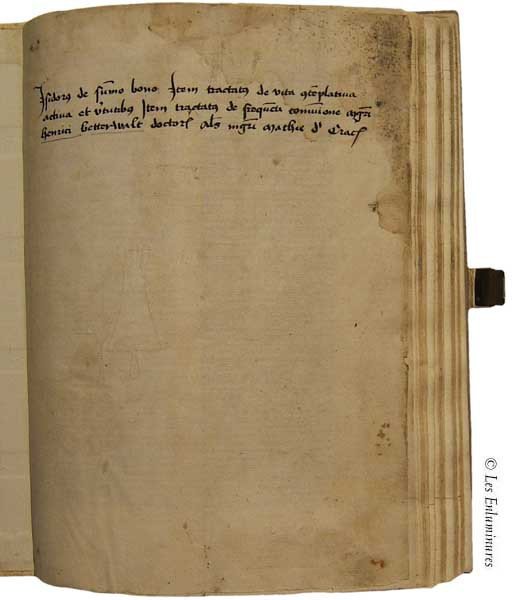 Isidorus de summo bono Item tractatus de vita contemplativa
activa et virtutibus Item tractatus de frequenti communione magistri
henrici doctoris alias magistri Mathie de Crac
© Les Enluminures